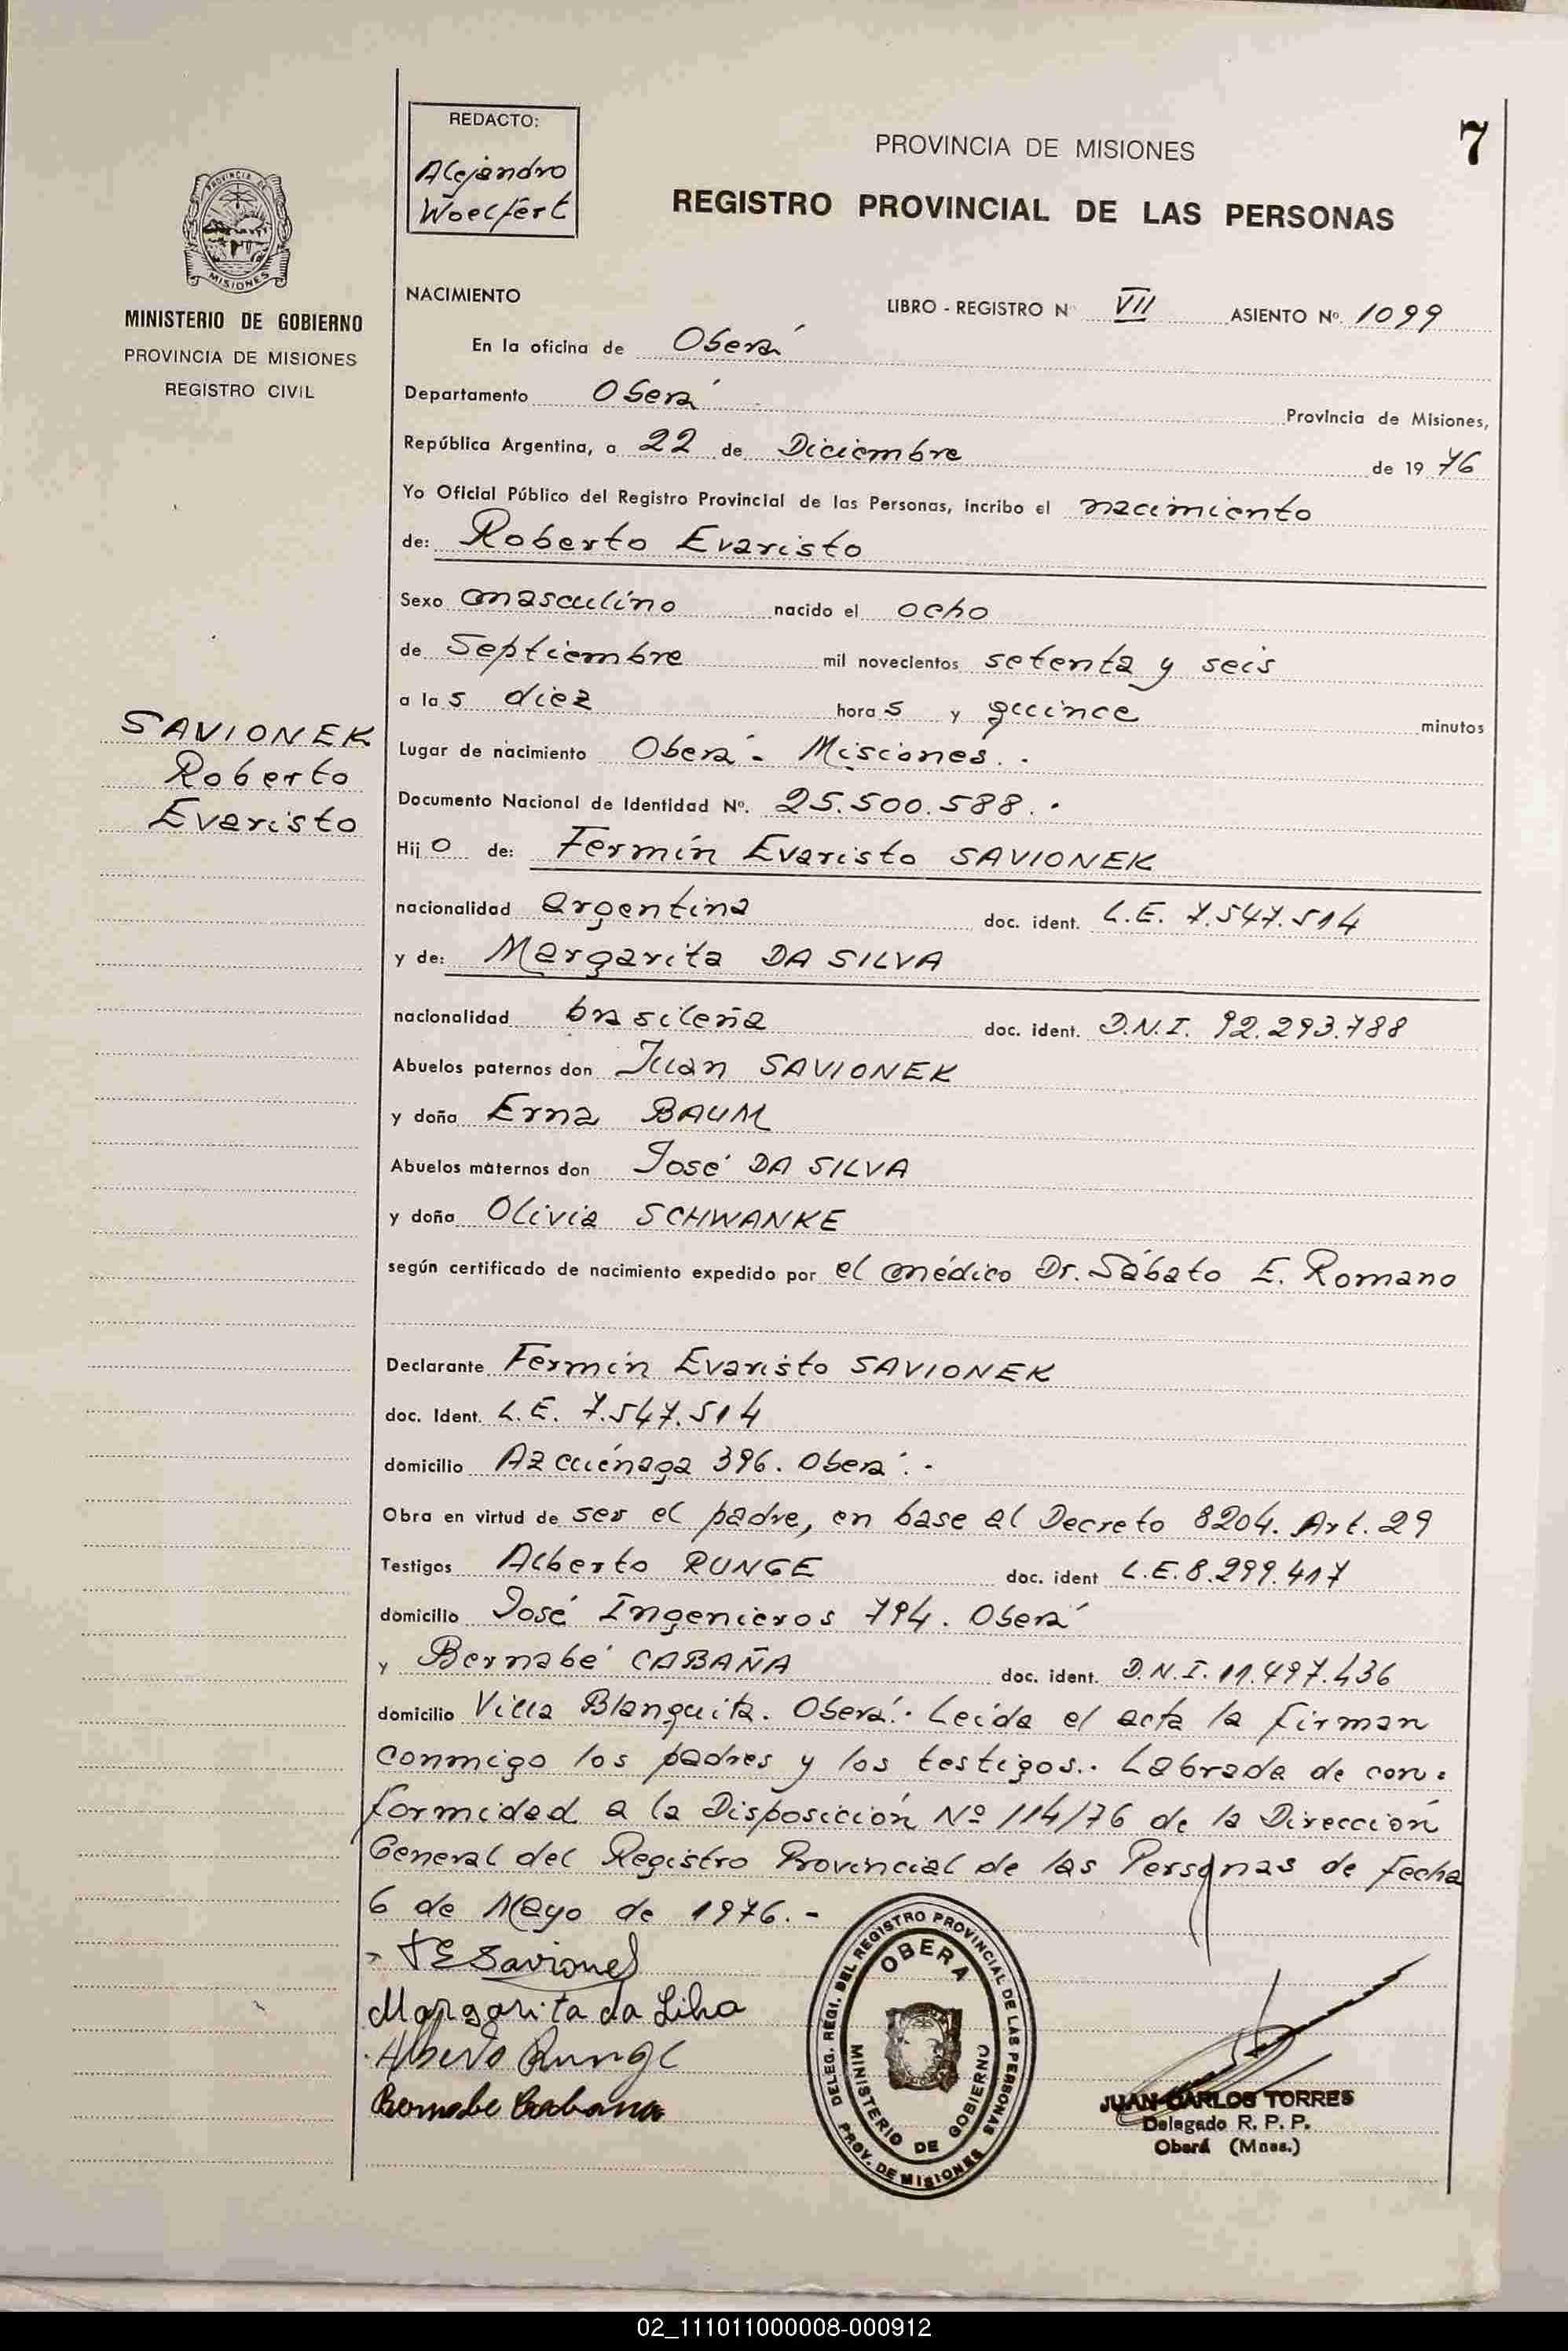 REDACTO:
Alejandro
Woelfert
PROVINCIA DE MISIONES
7
REGISTRO PROVINCIAL DE LAS PERSONAS
PROVINCIA DE
MISIONES
MINISTERIO DE GOBIERNO
PROVINCIA DE MISIONES
REGISTRO CIVIL
NACIMIENTO
LIBRO - REGISTRO N° VII ASIENTO Nº. 1099
En la oficina de Oberá
Departamento Oberá Provincia de Misiones,
República Argentina, a 22 de Diciembre de 19 76
Yo Oficial Público del Registro Provincial de las Personas, incribo el nacimiento
de: Roberto Evaristo
Sexo masculino nacido el ocho
de Septiembre mil novecientos setenta y seis
a las diez horas y quince minutos
SAVIONEK
Roberto
Evaristo
Lugar de nacimiento Oberá - Misiones. -
Documento Nacional de Identidad Nº. 25.500.588. -
Hijo de: Fermín Evaristo SAVIONEK
nacionalidad argentina doc. ident. L.E. 7.547.514
y de: Margarita DA SILVA
nacionalidad brasileña doc. ident. D.N.I. 92.293.788
Abuelos paternos don Juan SAVIONEK
y doña Erna BAUM
Abuelos maternos don José DA SILVA
y doña Olivia SCHWANKE
según certificado de nacimiento expedido por el médico Dr. Sábato E. Romano
Declarante Fermín Evaristo SAVIONEK
doc. Ident. L.E. 7.547.514
domicilio Azcuénaga 396. Oberá. -
Obra en virtud de ser el padre, en base al Decreto 8204. Art. 29
Testigos Alberto RUNGE doc. ident L.E. 8.299.417
domicilio José Ingenieros 794. Oberá
y Bernabé CABAÑA doc. ident. D.N.I. 11.497.436
domicilio Villa Blanquita. Oberá. - Leída el acta la firman
conmigo los padres y los testigos. - Labrada de con-
formidad a la Disposición Nº 114/76 de la Dirección
General del Registro Provincial de las Personas de fecha
6 de Mayo de 1976. -
F E Savionek
Margarita da Silva
Alberto Runge
Bernabe Cabana
DELEG. REGI. DEL REGISTRO PROVINCIAL DE LAS PERSONAS
OBERA
MINISTERIO DE GOBIERNO
PROV. DE MISIONES
JUAN CARLOS TORRES
Delegado R. P. P.
Oberá (Mnes.)
02_111011000008-000912